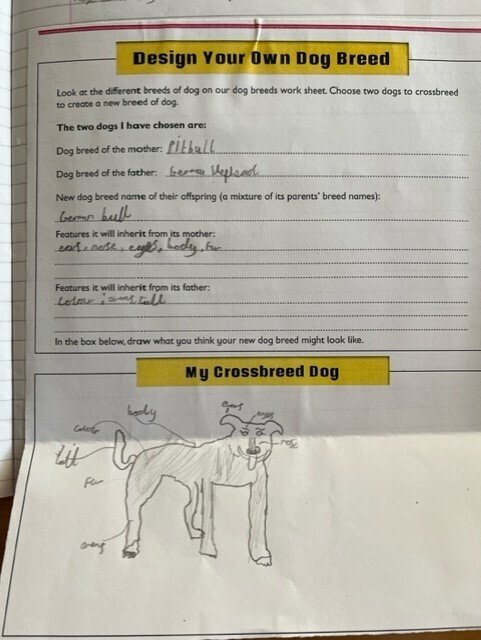 Design Your Own Dog Breed
Look at the different breeds of dog on our dog breeds work sheet. Choose two dogs to crossbreed
to create a new breed of dog.
The two dogs I have chosen are:
Dog breed of the mother: Pitbull
Dog breed of the father: Germen
New dog breed name of their offspring (a mixture of its parents' breed names):
German bull
Features it will inherit from its mother:
ears, nose, eyes, body, fur
Features it will inherit from its father:
In the box below, draw what you think your new dog breed might look like.
My Crossbreed Dog
ears
eyes
body
nose